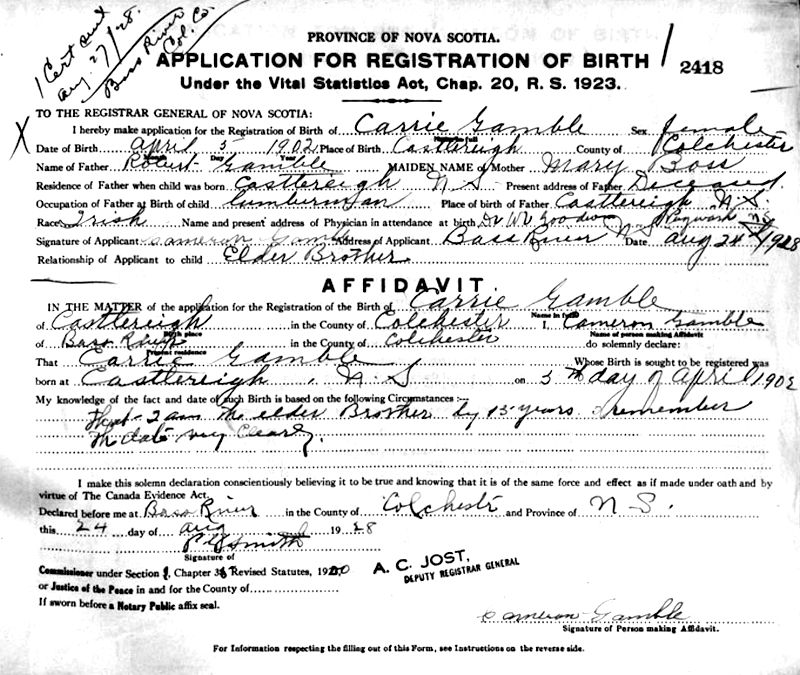 1 Cert sent
aug. 27/28.
Bass River
Col. Co.
PROVINCE OF NOVA SCOTIA.
APPLICATION FOR REGISTRATION OF BIRTH
2418
Under the Vital Statistics Act, Chap. 20, R. S. 1923.
TO THE REGISTRAR GENERAL OF NOVA SCOTIA:
X
I hereby make application for the Registration of Birth of Carrie Gamble Sex female
Date of Birth april 5 1902 Place of Birth Castlereigh County of Colchester
Month Day Year
Name of Father Robert Gamble MAIDEN NAME of Mother Mary Boss
Residence of Father when child was born Castlereigh N S Present address of Father Deceased
Occupation of Father at Birth of child lumberman Place of birth of Father Castlereigh N.S.
Race Irish Name and present address of Physician in attendance at birth Dr Goodwin Pugwash NS
Signature of Applicant Cameron Gamble Address of Applicant Bass River N S Date aug 24 1928
Relationship of Applicant to child Elder Brother
AFFIDAVIT.
IN THE MATTER of the application for the Registration of the Birth of Carrie Gamble
Name in full
of Castlereigh in the County of Colchester I, Cameron Gamble
Birth place
Name of person making Affidavit
of Bass River in the County of Colchester do solemnly declare:
Present residence
That Carrie Gamble Whose Birth is sought to be registered was
born at Castlereigh, N S on 5th day of April 1902
My knowledge of the fact and date of such Birth is based on the following Circumstances:—
That I am the elder Brother by 15 years & remember
the date very clearly.
I make this solemn declaration conscientiously believing it to be true and knowing that it is of the same force and effect as if made under oath and by
virtue of The Canada Evidence Act.
Declared before me at Bass River in the County of Colchestr and Province of N S.
this 24 day of aug 1928
Smith
Signature of
Commissioner under Section Chapter Revised Statutes, 1900
or Justice of the Peace in and for the County of
If sworn before a Notary Public affix seal.
A. C. JOST,
DEPUTY REGISTRAR GENERAL
Cameron Gamble
Signature of Person making Affidavit.
For Information respecting the filling out of this Form, see Instructions on the reverse side.